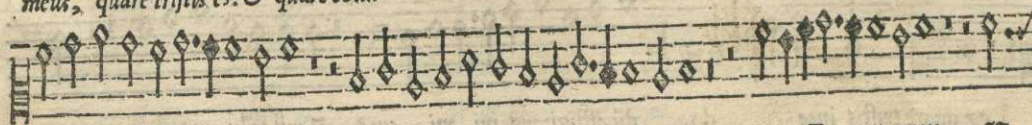 meus, quare tristis es: & quare con